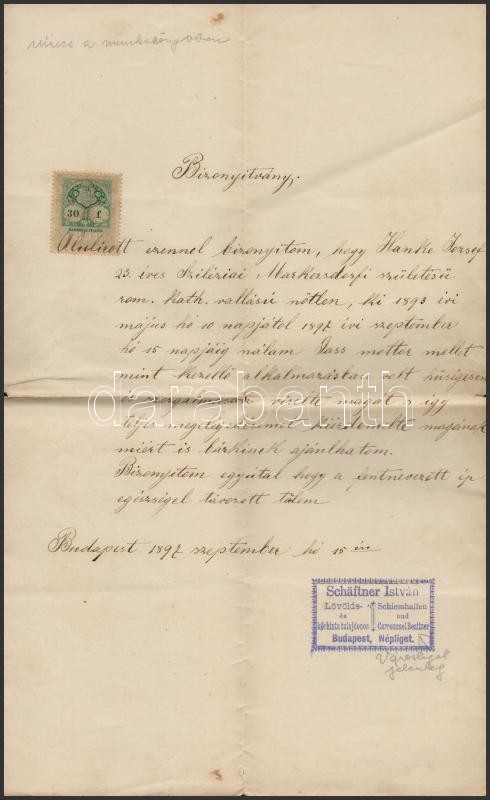 nincs a munkakönyvben
Bizonyitvány.
30 f
Alulirott ezennel bizonyitom, hogy Hanke Jozsef
23. éves Sziléziai Markersdorfi születésü
rom. kath. vallásu nőtlen, ki 1893 évi
május hó 10 napjától 1897 évi szeptember
hó 15 napjáig nálam Gass mottor mellet
mint kezelő alkalmazásban volt hüségesen
és szorgalmasan viselte magát s igy
teljes megelégedésemet kiérdemelte magának
miért is bárkinek ajánlhatom.
Bizonyitom egyútal hogy a fentnevezett ép
egészségel távozott tölem
Budapest 1897 szeptember hó 15 én
darabanth
Schäftner István
Lövölde- és körhinta tulajdonos
Schiesshallen und Carroussel Besitzer
Budapest, Népliget.
Városliget
jelenleg